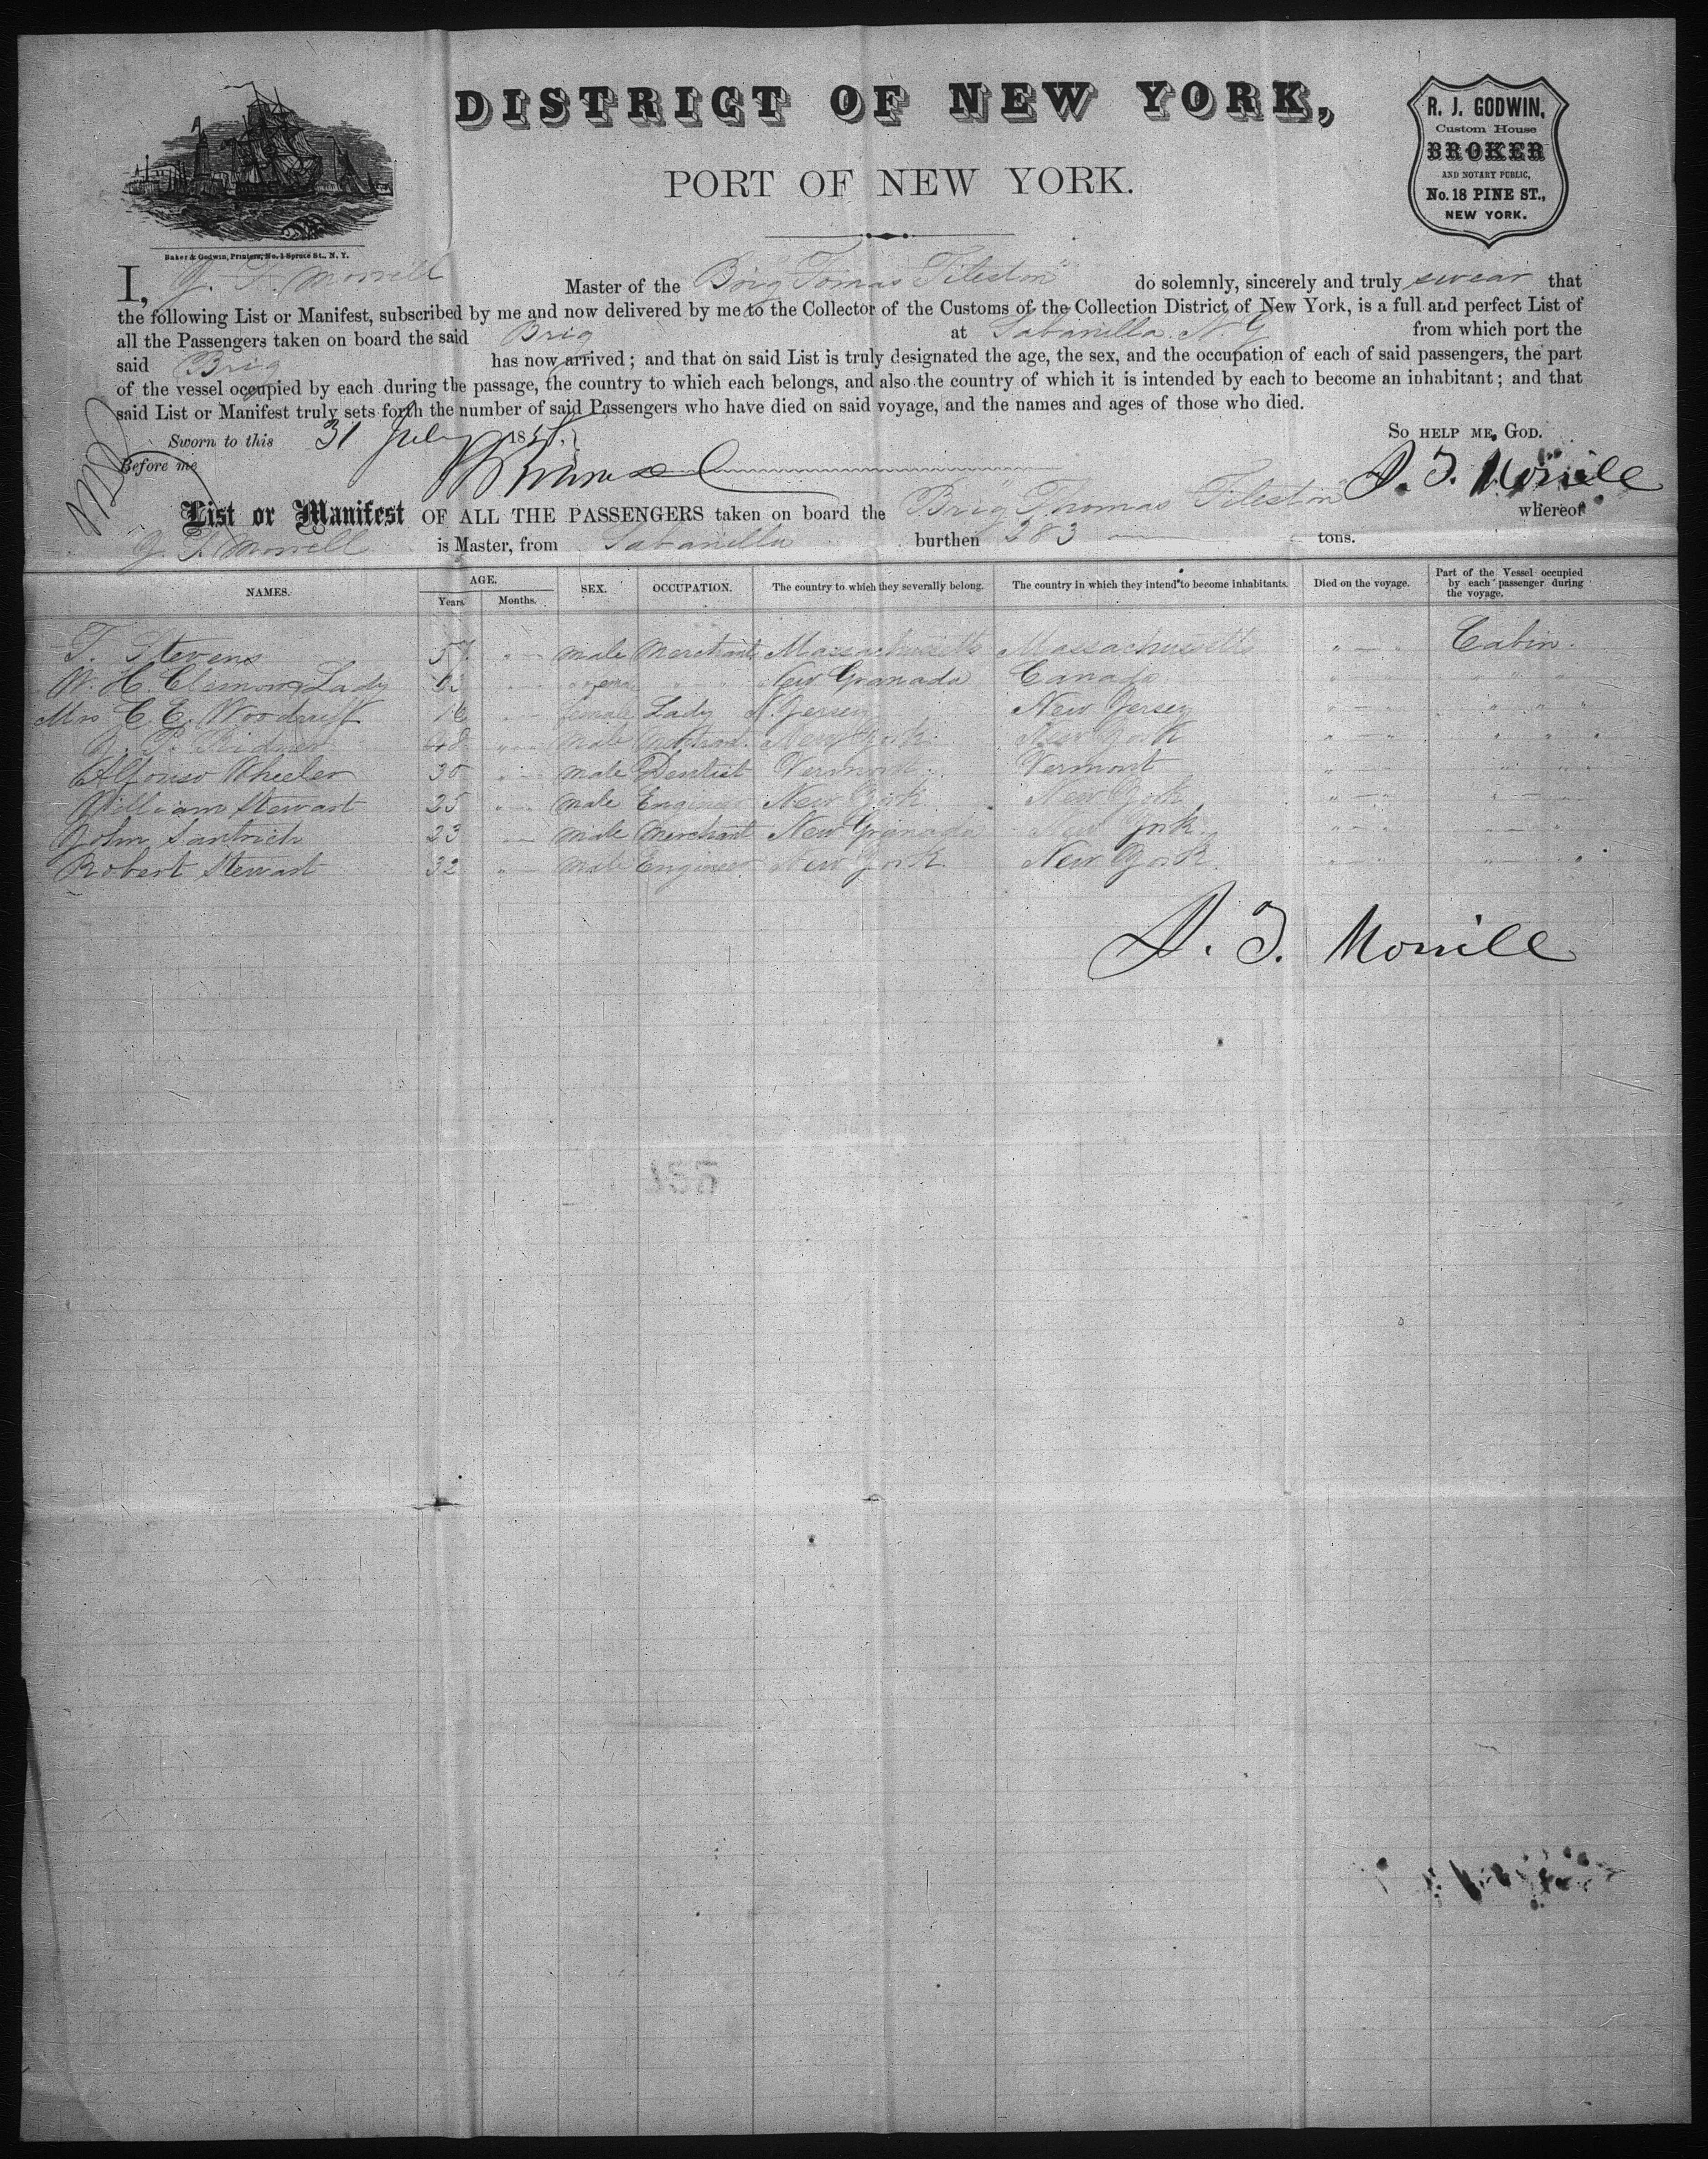 DISTRICT OF NEW YORK,
PORT OF NEW YORK.
R. J. GODWIN,
Custom House
BROKER
AND NOTARY PUBLIC,
No. 18 PINE ST.,
NEW YORK.
Baker & Godwin, Printers, No. 1 Spruce St., N. Y.
I, J. F. Morrill Master of the Brig "Tomas Tileston" do solemnly, sincerely and truly swear that
the following List or Manifest, subscribed by me and now delivered by me to the Collector of the Customs of the Collection District of New York, is a full and perfect List of
all the Passengers taken on board the said Brig at Sabanilla N. G from which port the
said Brig has now arrived; and that on said List is truly designated the age, the sex, and the occupation of each of said passengers, the part
of the vessel occupied by each during the passage, the country to which each belongs, and also the country of which it is intended by each to become an inhabitant; and that
said List or Manifest truly sets forth the number of said Passengers who have died on said voyage, and the names and ages of those who died.
Sworn to this 31 July 185 SO HELP ME, GOD.
Before me J. F. Morrill
List or Manifest OF ALL THE PASSENGERS taken on board the Brig "Thomas Tileston" whereof
J. F. Morrill is Master, from Sabanilla burthen 283 tons.
NAMES. AGE. Years. Months. SEX. OCCUPATION. The country to which they severally belong. The country in which they intend to become inhabitants. Died on the voyage. Part of the Vessel occupied by each passenger during the voyage.
T. Stevens 57 " — male Merchant Massachusetts Massachusetts " — " Cabin.
W. H. Clemons & Lady New Granada Canada " — " " " "
Mrs C. E. Woodruft 16 " — female Lady N. Jersey New Jersey " — " " " "
J. P. Ridner 48 " — male Merchant New York New York " — " " " "
Alfonso Wheeler 30 " — male Dentist Vermont Vermont " — " " "
William Stewart 25 " — male Engineer New York New York " — " " — "
John Santrich 23 " — male Merchant New Granada New York " — " " — "
Robert Stewart 32 " — male Engineer New York New York " — " " — "
J. F. Morrill